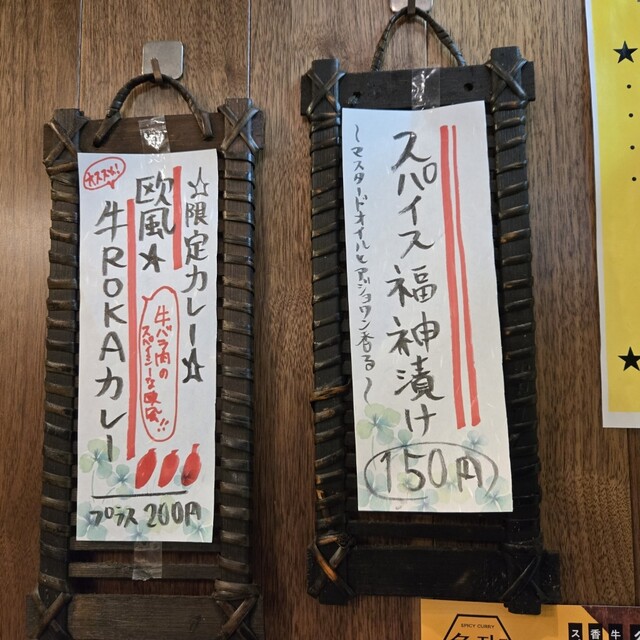 オススメ!
☆限定カレー☆
欧風★
牛ROKAカレー
牛バラ肉の
スパイシーな欧風!!
プラス 200円
スパイス福神漬け
〜マスタードオイルとアジョワン香る〜
150円
SPICY CURRY